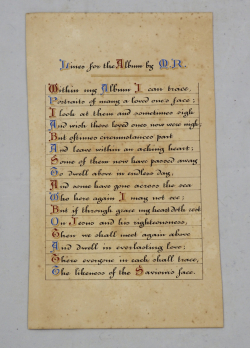 Lines for the Album by M.R.
Within my Album I can trace,
Portraits of many a loved ones face;
I look at them and sometimes sigh
And wish these loved ones now were nigh;
But oftimes circumstances part
And leave within an aching heart;
Some of them now have passed away
To dwell above in endless day;
And some have gone across the sea
Who here again I may not see;
But if through grace my heart doth rest
On Jesus and his righteousness,
Then we shall meet again above
And dwell in everlasting love;
There everyone in each shall trace,
The likeness of the Saviour's face.